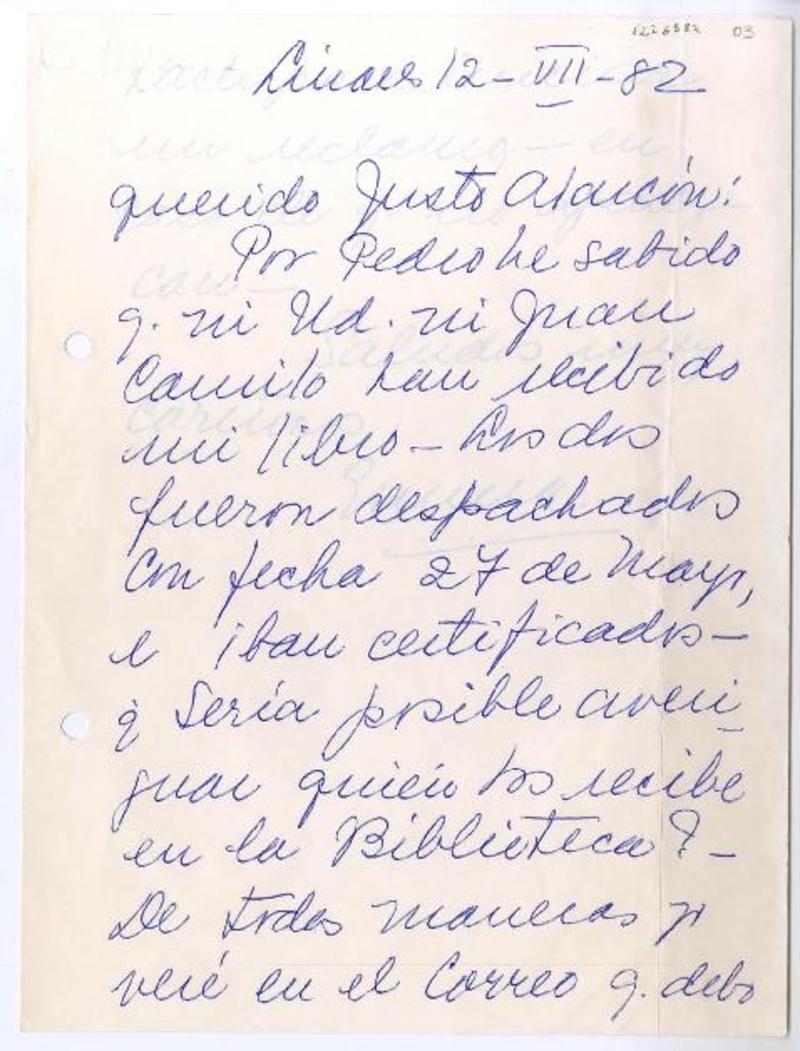 1226582 03
Linares 12-VII-82
querido Justo Alarcón:
Por Pedro he sabido
q. ni Ud. ni Juan
Camilo han recibido
mi libro - Los dos
fueron despachados
con fecha 27 de Mayo,
e iban certificados -
¿ Sería posible averi-
guar quién los recibe
en la Biblioteca? -
De todas maneras yo
veré en el Correo q. debo